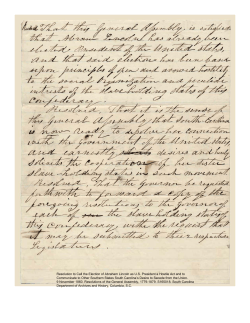 That this General Assembly is satisfied
that Abraham Lincoln has already been
elected President of the United States
and that said election has been based
upon principles of open and avowed hostility
to the social organization and peculiar
interests of the slave holding states of this
Confederacy.
Resolved That it is the sense of
this General Assembly that South Carolina
is now ready to dissolve her connection
with the Government of the United States
and earnestly desires and
solicits the cooperation of her sister
slave holding states in such movement.
Resolved, That the Governor be requested
forthwith to forward a copy of the
foregoing resolutions to the Governor
each of the slaveholding states of
this Confederacy, with the request that
it may be submitted to their respective
Legislatures.
Resolution to Call the Election of Abraham Lincoln as U.S. President a Hostile Act and to
Communicate to Other Southern States South Carolina's Desire to Secede from the Union.
9 November 1860. Resolutions of the General Assembly, 1779-1879. S165018. South Carolina
Department of Archives and History, Columbia, S.C.